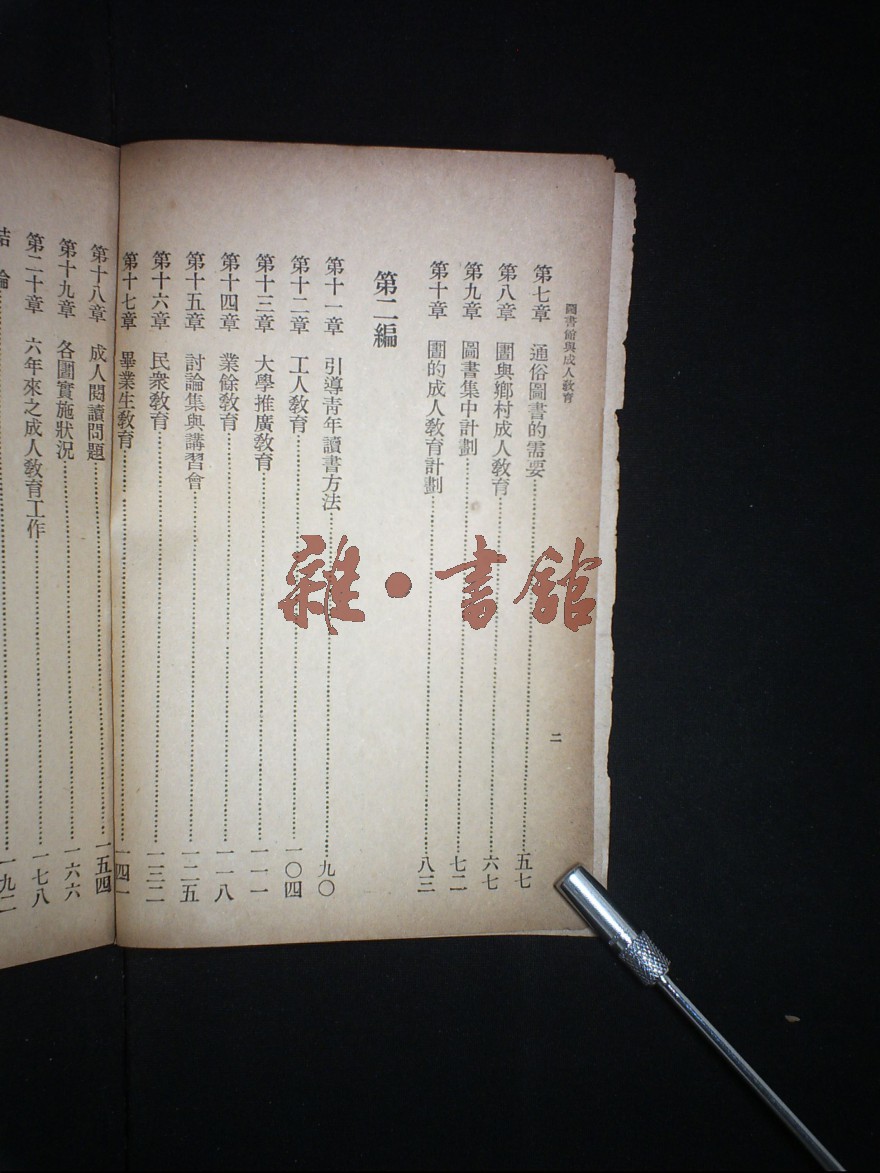 圖書館與成人教育
二
第七章 通俗圖書的需要……五七
第八章 圕與鄉村成人教育……六七
第九章 圖書集中計劃……七二
第十章 圕的成人教育計劃……八三
第二編
第十一章 引導靑年讀書方法……九〇
第十二章 工人教育……一〇四
第十三章 大學推廣教育……一一一
第十四章 業餘教育……一一八
第十五章 討論集與講習會……一二五
第十六章 民衆教育……一三二
第十七章 畢業生教育……一四一
第十八章 成人閱讀問題……一五四
第十九章 各圕實施狀況……一六六
第二十章 六年來之成人教育工作……一七八
結論……一九二
雜·書館